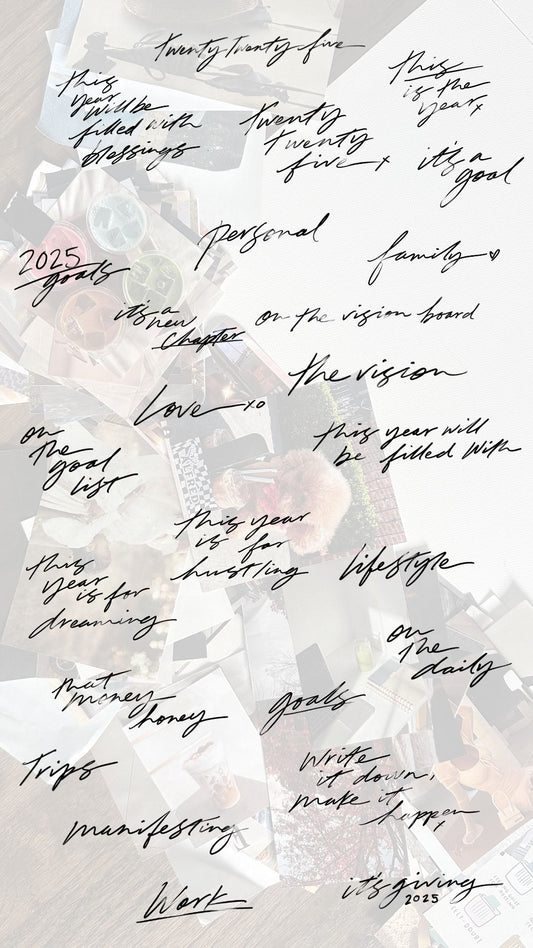 Twenty Twenty-five
this
is the
year x
this
year
will be
filled with
blessings
Twenty
twenty
five x
it's a
goal
personal
family ♡
2025
goals
it's a
new
chapter
on the vision board
the vision
Love xo
on
the
goal
list
this year will
be filled with
this year
is for
hustling
this
year
is for
dreaming
lifestyle
on
the
daily
that
money
honey
goals
Trips
Write
it down,
make it
happen
x
manifesting
Work
it's giving
2025